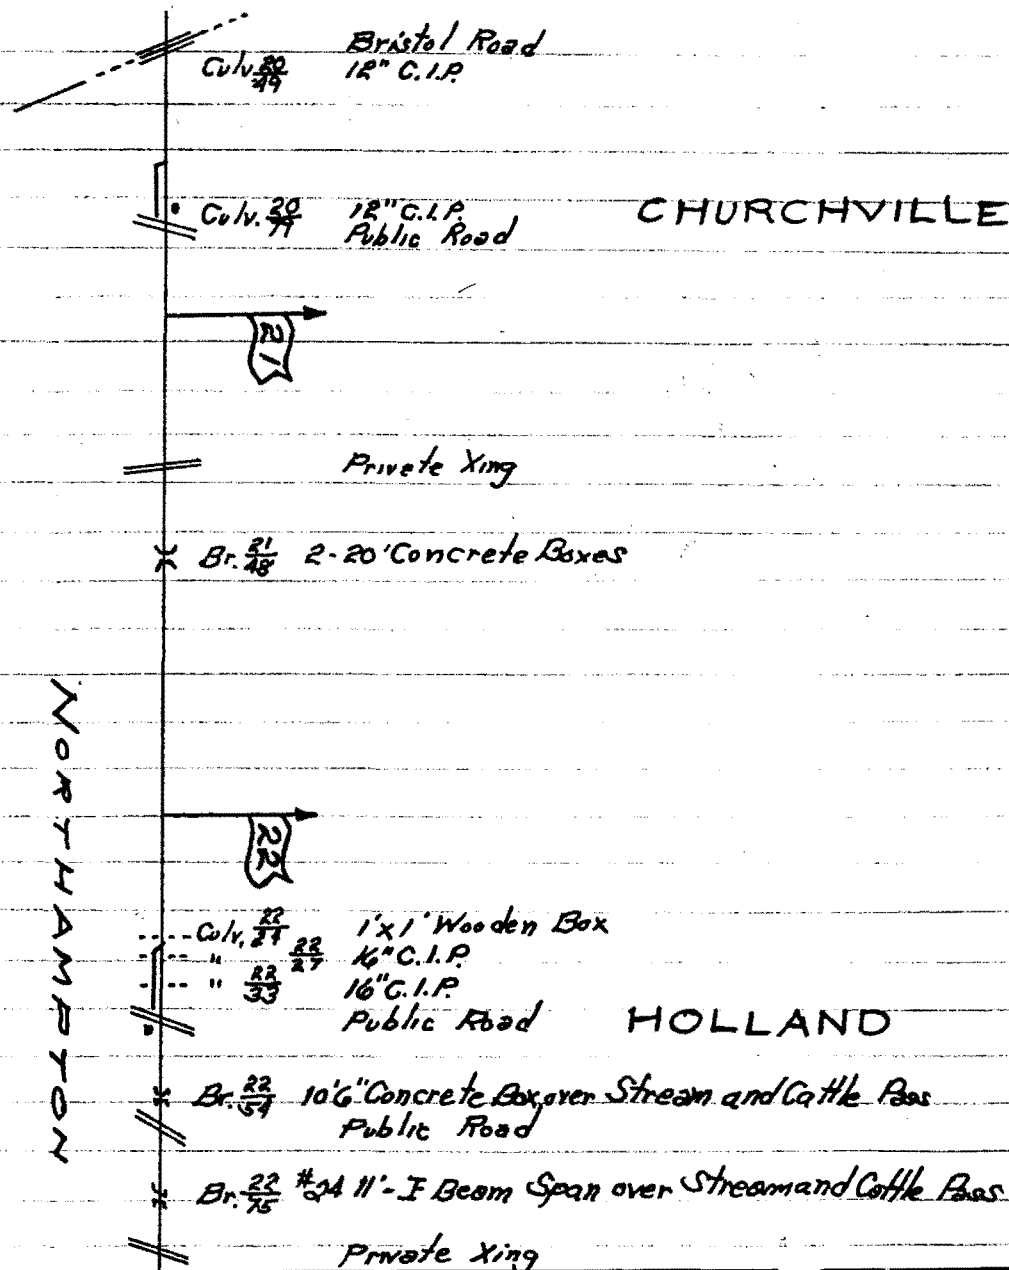 Bristol Road
Culv. 20/49 12" C.I.P.
Culv. 20/71 12" C.I.P. CHURCHVILLE
Public Road
21
Private Xing
Br. 21/48 2-20' Concrete Boxes
NORTHAMPTON
22
Culv. 22/24 1'x1' Wooden Box
" 22/27 16" C.I.P.
" 22/33 16" C.I.P.
Public Road HOLLAND
Br. 22/54 10'6" Concrete Box over Stream and Cattle Pass
Public Road
Br. 22/75 #24 11'-I Beam Span over Stream and Cattle Pass
Private Xing